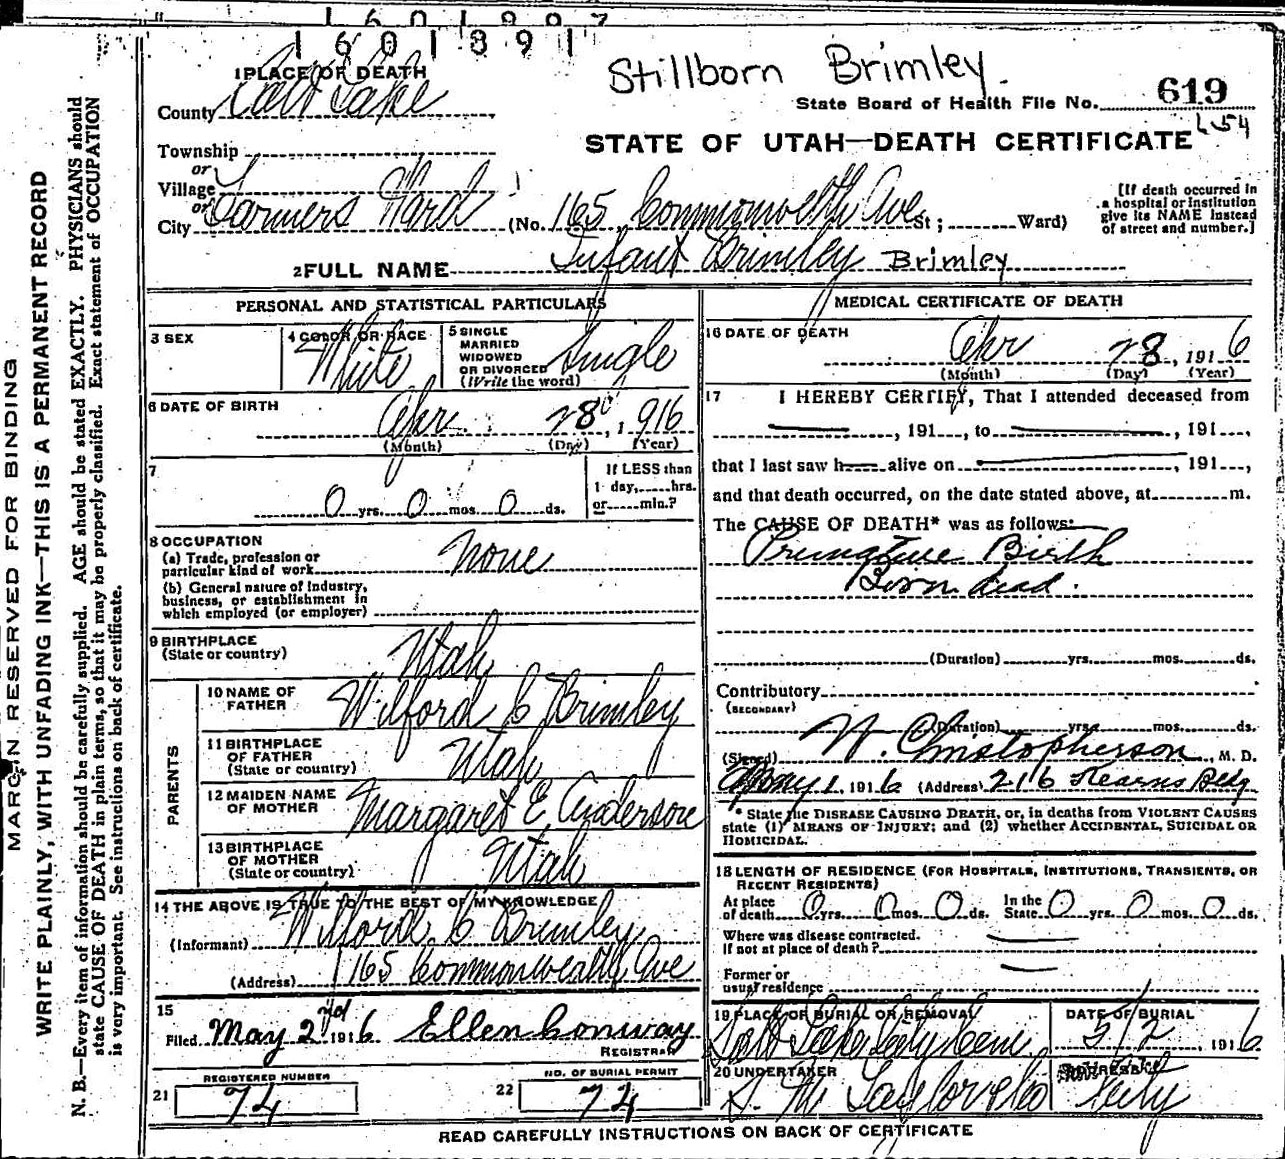 1601897
1601891
Stillborn Brimley.
1 PLACE OF DEATH
County Salt Lake
State Board of Health File No. 619
STATE OF UTAH—DEATH CERTIFICATE
Township
or
Village
or
City Farmers Ward (No. 165 Commonwelth Ave St; Ward)
[If death occurred in
a hospital or institution
give its NAME instead
of street and number.]
2 FULL NAME Infant Brimley Brimley
PERSONAL AND STATISTICAL PARTICULARS
3 SEX
4 COLOR OR RACE White
5 SINGLE
MARRIED
WIDOWED
OR DIVORCED
(Write the word)
Single
6 DATE OF BIRTH
Apr 28, 1916
(Month) (Day) (Year)
7
0 yrs. 0 mos. 0 ds.
If LESS than
1 day, hrs.
or min.?
8 OCCUPATION
(a) Trade, profession or
particular kind of work None
(b) General nature of industry,
business, or establishment in
which employed (or employer)
9 BIRTHPLACE
(State or country) Utah
PARENTS
10 NAME OF
FATHER Wilford C Brimley
11 BIRTHPLACE
OF FATHER
(State or country) Utah
12 MAIDEN NAME
OF MOTHER Margaret E Anderson
13 BIRTHPLACE
OF MOTHER
(State or country) Utah
14 THE ABOVE IS TRUE TO THE BEST OF MY KNOWLEDGE
(Informant) Wilford C Brimley
(Address) 165 Commonwealth Ave
15
Filed May 2nd 1916 Ellen Conway
REGISTRAR
21 REGISTERED NUMBER 74
22 NO. OF BURIAL PERMIT 74
MEDICAL CERTIFICATE OF DEATH
16 DATE OF DEATH
Apr 28, 1916
(Month) (Day) (Year)
17 I HEREBY CERTIFY, That I attended deceased from
, 191 , to , 191 ,
that I last saw h alive on , 191 ,
and that death occurred, on the date stated above, at m.
The CAUSE OF DEATH* was as follows:
Premature Birth
Born dead.
(Duration) yrs. mos. ds.
Contributory
(SECONDARY)
(Duration) yrs. mos. ds.
(Signed) W. Christopherson, M. D.
May 1, 1916 (Address) 216 Kearns Bldg
* State the DISEASE CAUSING DEATH, or, in deaths from VIOLENT CAUSES
state (1) MEANS OF INJURY; and (2) whether ACCIDENTAL, SUICIDAL OR
HOMICIDAL.
18 LENGTH OF RESIDENCE (FOR HOSPITALS, INSTITUTIONS, TRANSIENTS, OR
RECENT RESIDENTS)
At place
of death 0 yrs. 0 mos. 0 ds.
In the
State 0 yrs. 0 mos. 0 ds.
Where was disease contracted.
If not at place of death?
Former or
usual residence
19 PLACE OF BURIAL OR REMOVAL
Salt Lake City Cem.
DATE OF BURIAL
5/2, 1916
20 UNDERTAKER
S. M. Taylor
ADDRESS
City
READ CAREFULLY INSTRUCTIONS ON BACK OF CERTIFICATE
MARGIN RESERVED FOR BINDING
WRITE PLAINLY, WITH UNFADING INK—THIS IS A PERMANENT RECORD
N. B.—Every item of information should be carefully supplied. AGE should be stated EXACTLY. PHYSICIANS should
state CAUSE OF DEATH in plain terms, so that it may be properly classified. Exact statement of OCCUPATION
is very important. See instructions on back of certificate.